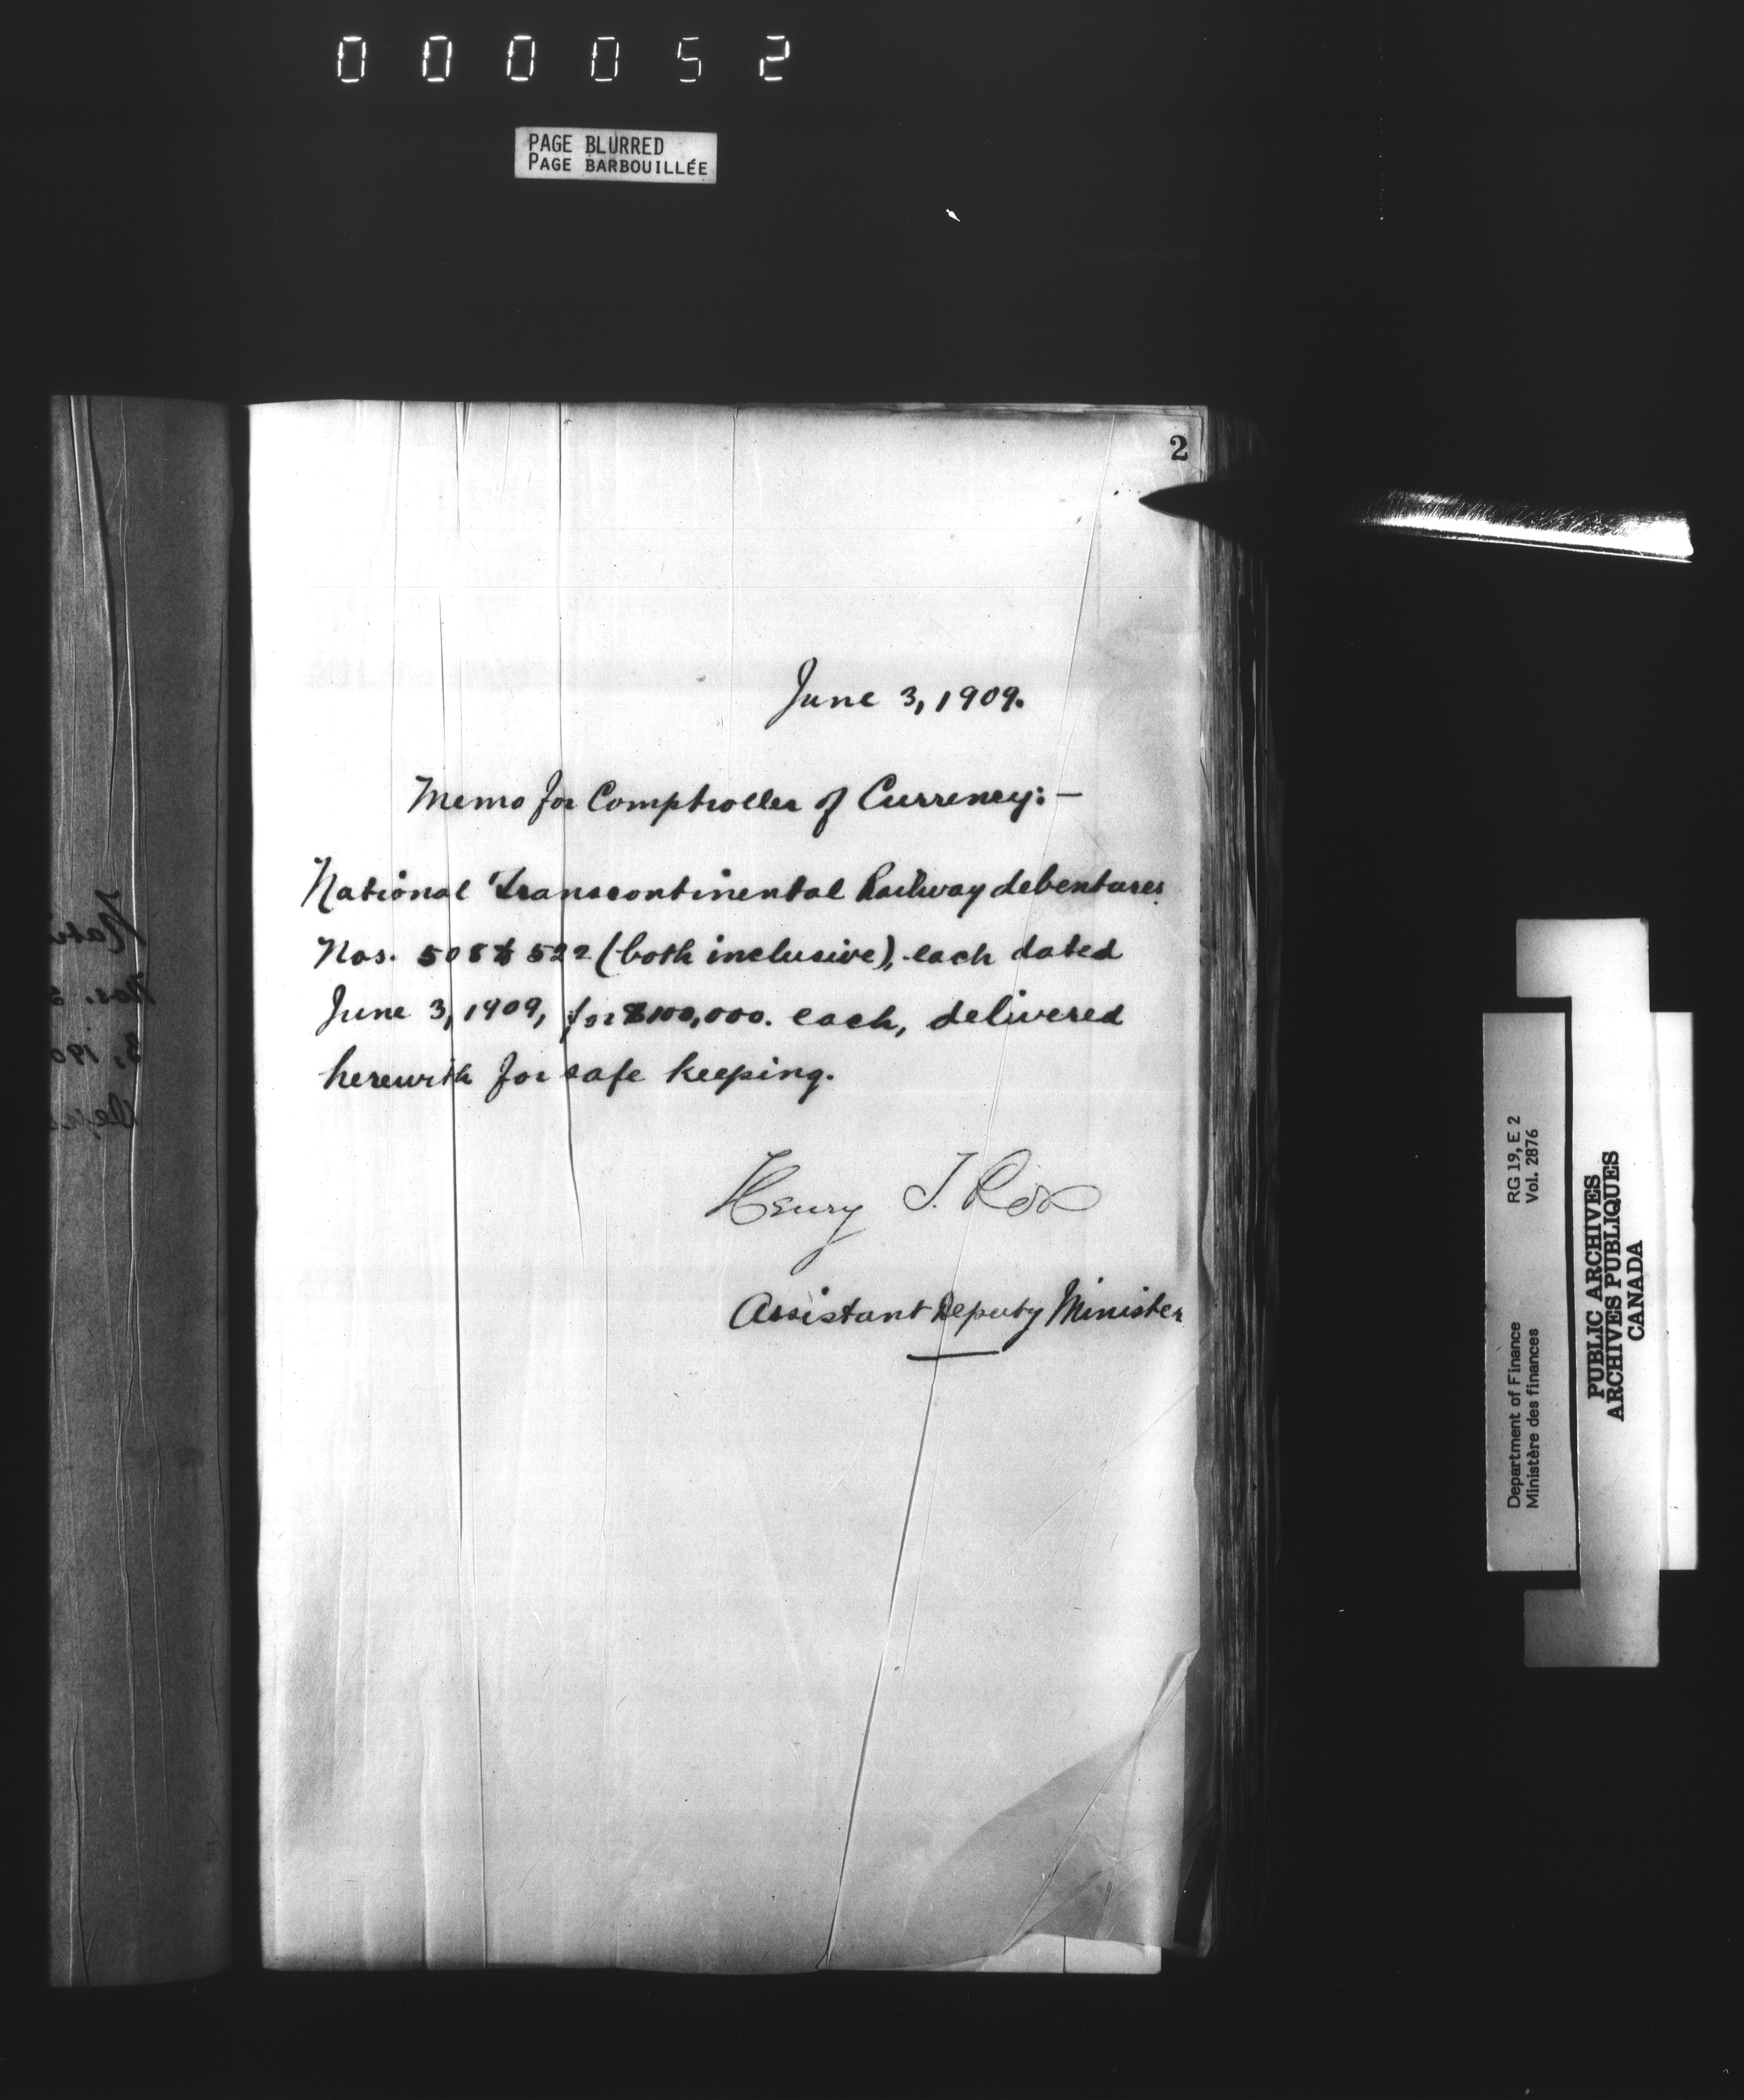 000052
PAGE BLURRED
PAGE BARBOUILLÉE
2
June 3, 1909.
Memo for Comptroller of Currency:—
National Transcontinental Railway debentures
Nos. 508 to 522 (both inclusive), each dated
June 3, 1909, for $100,000. each, delivered
herewith for safe keeping.
Henry T. Ross
Assistant Deputy Minister
Department of Finance RG 19, E 2
Ministère des finances Vol. 2876
PUBLIC ARCHIVES
ARCHIVES PUBLIQUES
CANADA